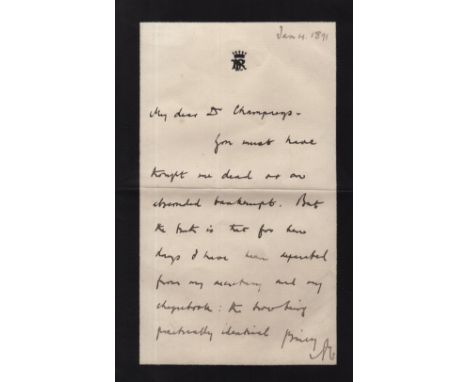 Jan 4. 1891
AR
My dear Dr Champneys -
You must have
thought me dead or an
absconded bankrupt. But
the truth is that for two
days I have been separated
from my secretary and my
chequebook: the two being
practically identical